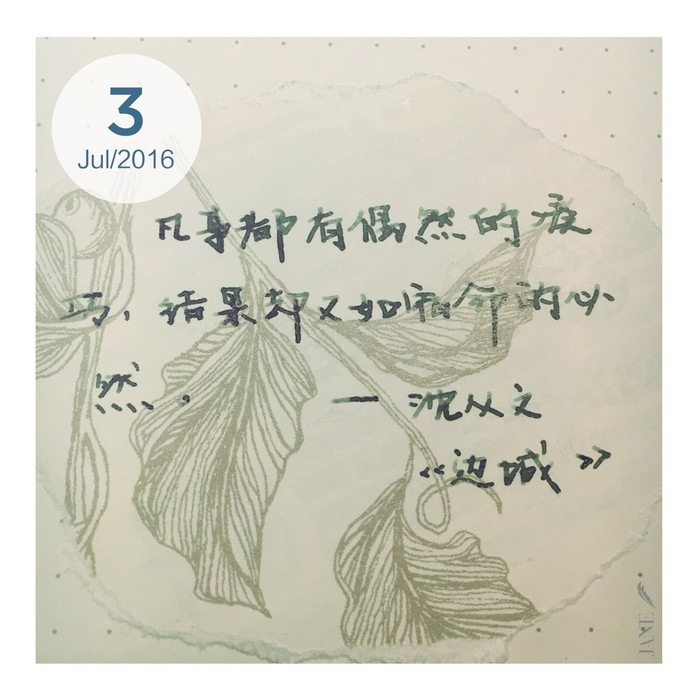 3
Jul/2016
凡事都有偶然的凑
巧,结果却又如宿命的必
然。 — 沈从文
《边城》
JANE